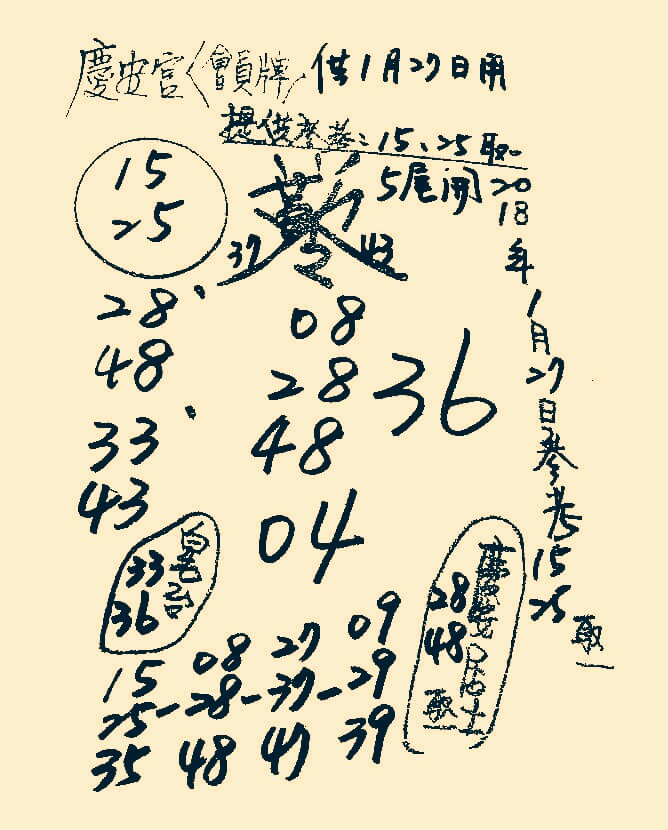 慶安宮〈會員牌〉供1月27日用
提供參考：15、25取一
5尾開
15
25
37 43
28
48
33
43
08
28
48
04
36
2018年1月27日參考15 25 取一
33
36
28
48
取一
15 08 27 09
25-28-37-29
35 48 47 39